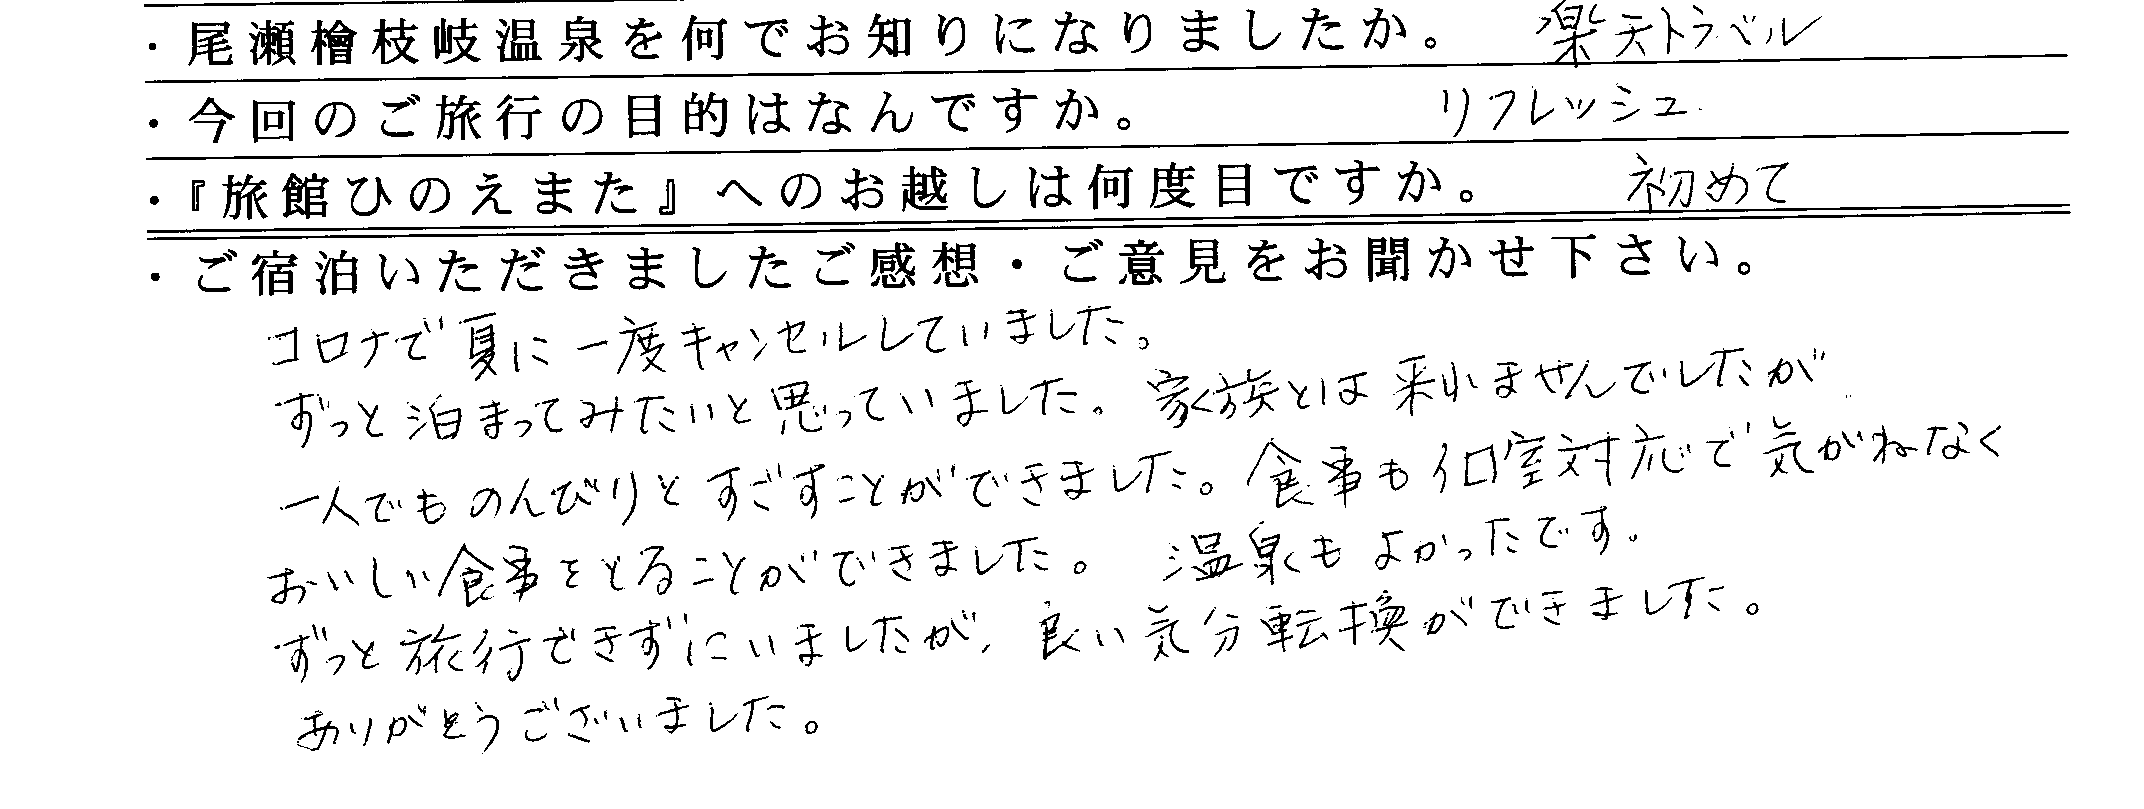 ・尾瀬檜枝岐温泉を何でお知りになりましたか。 楽天トラベル
・今回のご旅行の目的はなんですか。 リフレッシュ.
・『旅館ひのえまた』へのお越しは何度目ですか。 初めて
・ご宿泊いただきましたご感想・ご意見をお聞かせ下さい。
コロナで夏に一度キャンセルしていました。
ずっと泊まってみたいと思っていました。家族とは来れませんでしたが
一人でものんびりとすごすことができました。食事も個室対応で気がねなく
おいしい食事をとることができました。 温泉もよかったです.
ずっと旅行できずにいましたが、良い気分転換ができました。
ありがとうございました。